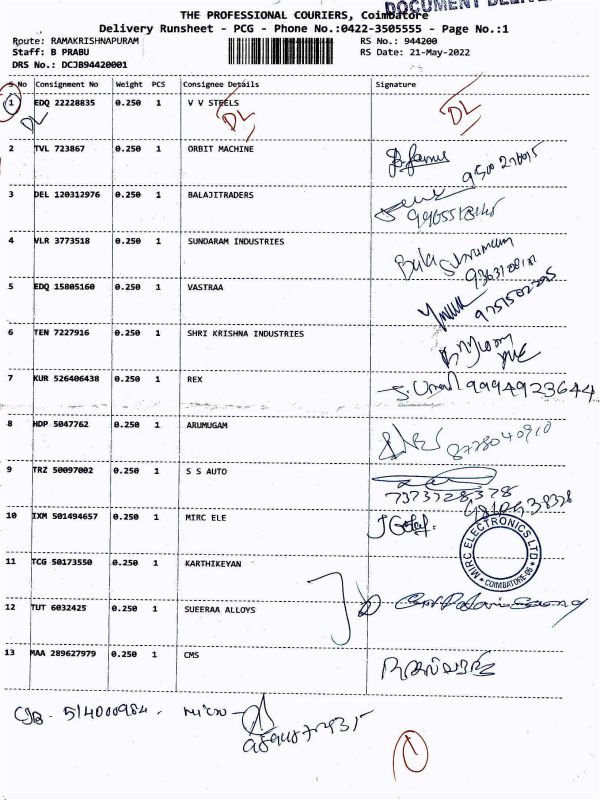 DOCUMENT
THE PROFESSIONAL COURIERS, Coimbatore
Delivery Runsheet - PCG - Phone No.:0422-3505555 - Page No.:1
Route: RAMAKRISHNAPURAM RS No.: 944200
Staff: B PRABU RS Date: 21-May-2022
DRS No.: DCJB94420001
S No Consignment No Weight PCS Consignee Details Signature
1 EDQ 22228835 0.250 1 V V STEELS DL
DL DL
2 TVL 723867 0.250 1 ORBIT MACHINE
3 DEL 120312976 0.250 1 BALAJITRADERS
4 VLR 3773518 0.250 1 SUNDARAM INDUSTRIES
5 EDQ 15805160 0.250 1 VASTRAA
6 TEN 7227916 0.250 1 SHRI KRISHNA INDUSTRIES
7 KUR 526406438 0.250 1 REX 9994923644
8 HDP 5047762 0.250 1 ARUMUGAM 8778040910
9 TRZ 50097002 0.250 1 S S AUTO
7373728378
10 IXM 501494657 0.250 1 MIRC ELE
MIRC ELECTRONICS LTD
COIMBATORE-06
11 TCG 50173550 0.250 1 KARTHIKEYAN
12 TUT 6032425 0.250 1 SUEERAA ALLOYS
13 MAA 289627979 0.250 1 CMS
CJB - 514000984 -
1